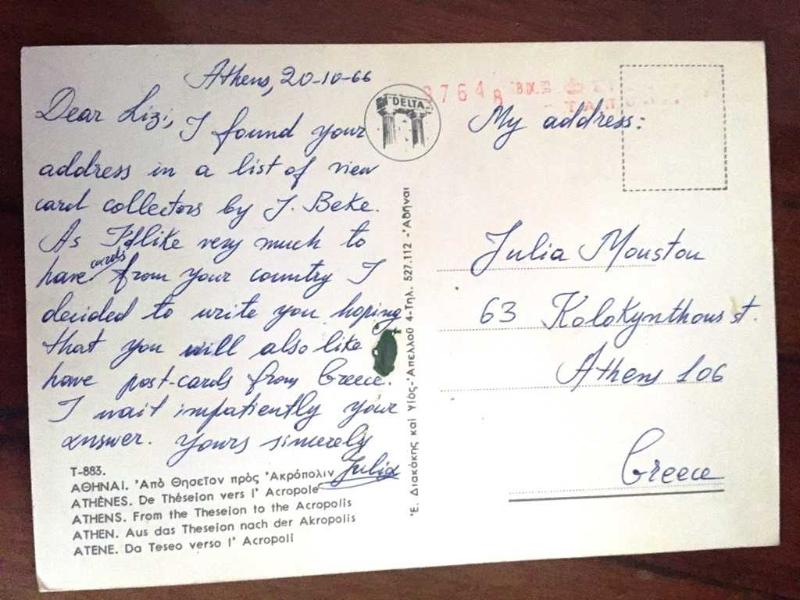 Athens, 20-10-66
Dear Lizi,
I found your
address in a list of view
card collectors by J. Beke.
As I'd like very much to
have cards from your country I
decided to write you hoping
that you will also like
have post-cards from Greece.
I wait impatiently your
answer. Yours sincerely
Julia
T-883.
ΑΘΗΝΑΙ. Ἀπὸ Θησεῖον πρὸς Ἀκρόπολιν
ATHÈNES. De Théseion vers l' Acropole
ATHENS. From the Theseion to the Acropolis
ATHEN. Aus das Theseion nach der Akropolis
ATENE. Da Teseo verso l' Acropoli
DELTA
Ἐ. Διακάκης καὶ Υἱός-Ἀπελλοῦ 4-Τηλ. 527.112 -Ἀθῆναι
37648
My address:
Julia Moustou
63 Kolokynthous st.
Athens 106
Greece